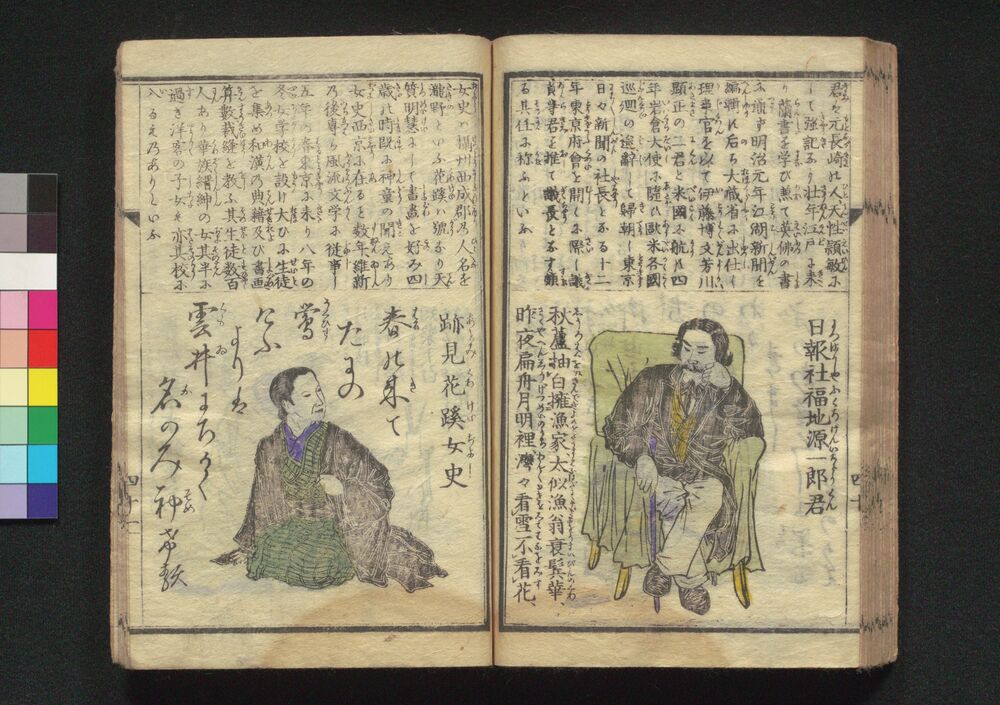 君ハ元長崎の人天性頴敏に
して強記なり壮年江戸に来
り蘭書を学び兼て英佛の書
に渉す明治元年江湖新聞を
編輯し后ち大蔵省に出仕し
理事官を以て伊藤博文芳川
顕正の二君と米國に航し四
年岩倉大使に随ひ欧米各國
巡廻の後辞して帰朝し東京
日々新聞の社長となる十二
年東京府會を開くに際し議
員等君を推て議長となす頗
る其任に称ふといふ
日報社福地源一郎君
秋蘆抽白擁漁家太似漁翁衰鬂華、
昨夜扁舟月明裡灣々看雪不看花、
四十
女史ハ摂州西成郡の人名を
瀧野といふ花蹊ハ号なり天
質明慧にして書画を好み四
歳の時既に神童の聞えあり
女史西京に在ると数年維新
乃後専ら風流文学に従事し
五年の春東京に来り八年の
冬女学校を設け大ひに生徒
を集め和漢の典籍及び書画
算数裁縫を教ふ其生徒数百
人あり華族縉紳の女其半に
過き洋客の子女も亦其校に
入るものありといふ
跡見花蹊女史
春の来て
たにの
鶯
けふ
よりは
雲井にちかく
名のみ
四十一